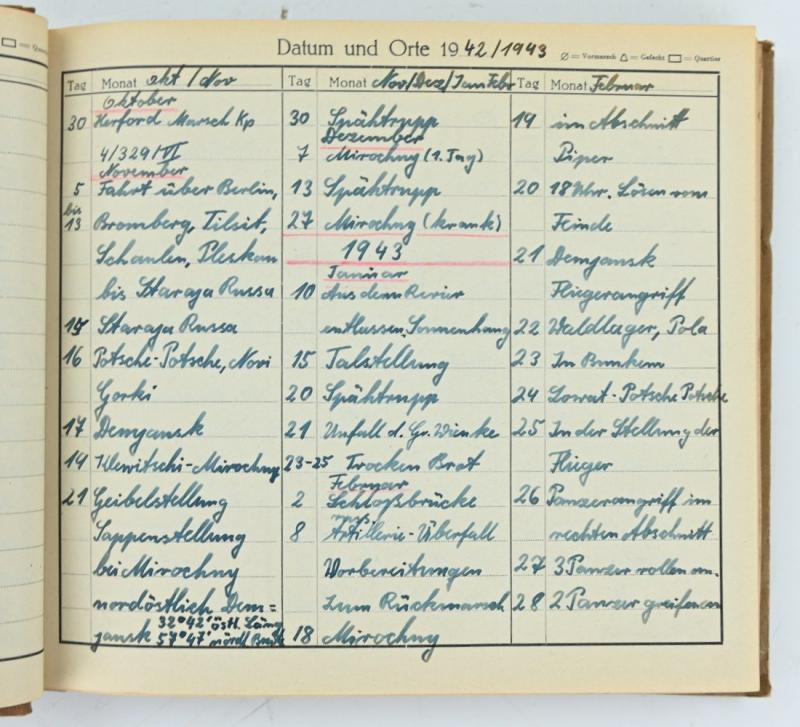 Datum und Orte 1942/1943
= Vormarsch = Gefecht = Quartier
Tag Monat Okt/Nov
Oktober
30 Herford Marsch Kp
4/329/VI
November
5 Fahrt über Berlin,
bis
13 Bromberg, Tilsit,
Schaulen, Pleskau
bis Staraja Russa
15 Staraja Russa
16 Potsche-Potsche, Novi
Gorki
17 Demjansk
19 Ilewitschi-Mirochny
21 Geibelstellung
Sappenstellung
bei Mirochny
nordöstlich Dem=
jansk 32°42' östl. Läng
57°47' nördl. Breit
Tag Monat Nov/Dez/Jan Febr
30 Spähtrupp
Dezember
7 Mirochny (1. Tag)
13 Spähtrupp
27 Mirochny (krank)
1943
Januar
10 Aus dem Revier
entlassen, Sonnenhang
15 Talstellung
20 Spähtrupp
21 Unfall d. Gr. Wienke
23-25 Trocken Brot
Februar
2 Schloßbrücke
russ.
8 Artillerie-Überfall
Vorbereitungen
zum Rückmarsch
18 Mirochny
Tag Monat Februar
19 im Abschnitt
Piper
20 18 Uhr. Lösen vom
Feinde
21 Demjansk
Fliegerangriff
22 Waldlager, Pola
23 In Bunkern
24 Lowat-Potsche Potsche
25 In der Stellung der
Flieger
26 Panzerangriff im
rechten Abschnitt
27 3 Panzer rollen an.
28 2 Panzer greifen an